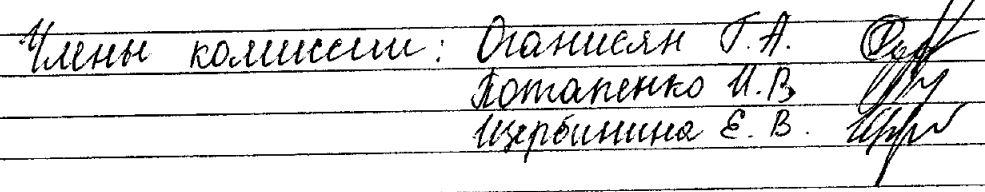 Члены комиссии: Оганисян Г.А.
Потапенко И.В.
Щербинина Е.В.